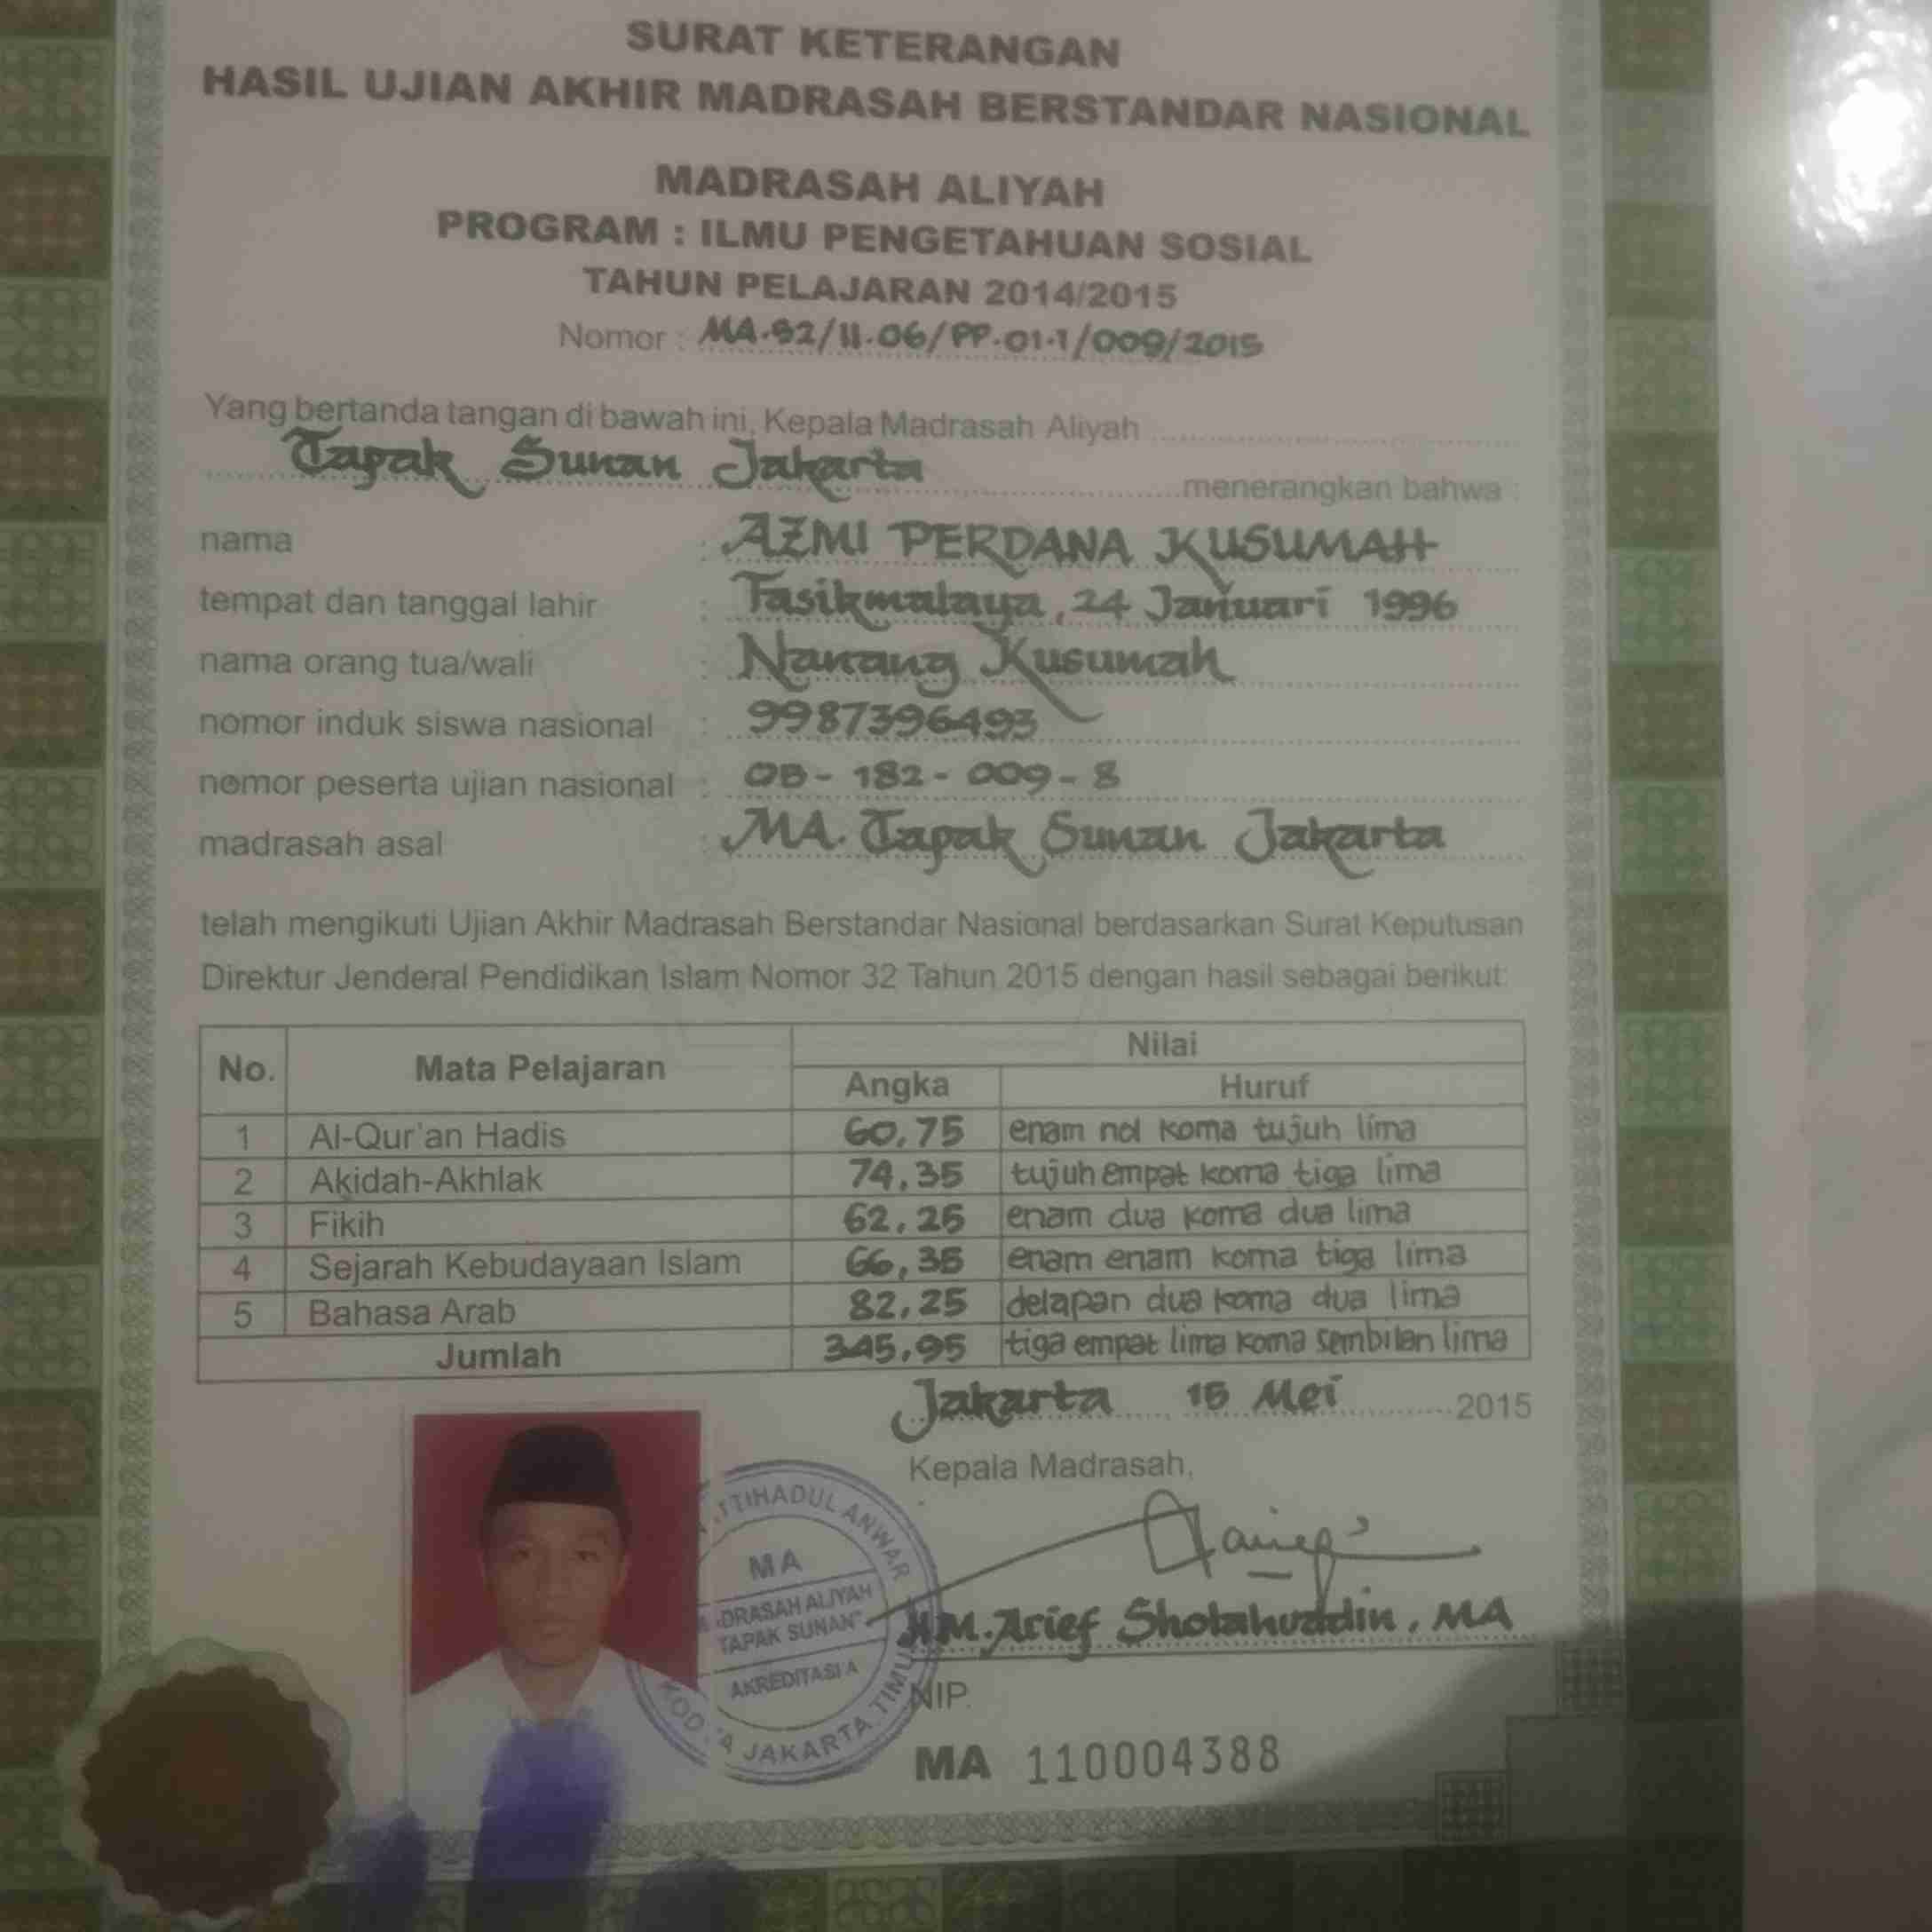 SURAT KETERANGAN
HASIL UJIAN AKHIR MADRASAH BERSTANDAR NASIONAL
MADRASAH ALIYAH
PROGRAM : ILMU PENGETAHUAN SOSIAL
TAHUN PELAJARAN 2014/2015
Nomor : MA.92/11.06/PP.01.1/009/2015
Yang bertanda tangan di bawah ini, Kepala Madrasah Aliyah
Tapak Sunan Jakarta menerangkan bahwa :
nama : AZMI PERDANA KUSUMAH
tempat dan tanggal lahir : Tasikmalaya, 24 Januari 1996
nama orang tua/wali : Nanang Kusumah
nomor induk siswa nasional : 9987396493
nomor peserta ujian nasional : 0B - 182 - 009 - 8
madrasah asal : MA. Tapak Sunan Jakarta
telah mengikuti Ujian Akhir Madrasah Berstandar Nasional berdasarkan Surat Keputusan
Direktur Jenderal Pendidikan Islam Nomor 32 Tahun 2015 dengan hasil sebagai berikut:
No. Mata Pelajaran Nilai
Angka Huruf
1 Al-Qur'an Hadis 60,75 enam nol koma tujuh lima
2 Akidah-Akhlak 74,35 tujuh empat koma tiga lima
3 Fikih 62,25 enam dua koma dua lima
4 Sejarah Kebudayaan Islam 66,35 enam enam koma tiga lima
5 Bahasa Arab 82,25 delapan dua koma dua lima
Jumlah 345,95 tiga empat lima koma sembilan lima
Jakarta, 15 Mei 2015
Kepala Madrasah,
ITTIHADUL ANWAR
MA
DRASAH ALIYAH
TAPAK SUNAN"
AKREDITASI A
JAKARTA TIMU
H.M. Arief Sholahuddin, MA
NIP.
MA 110004388